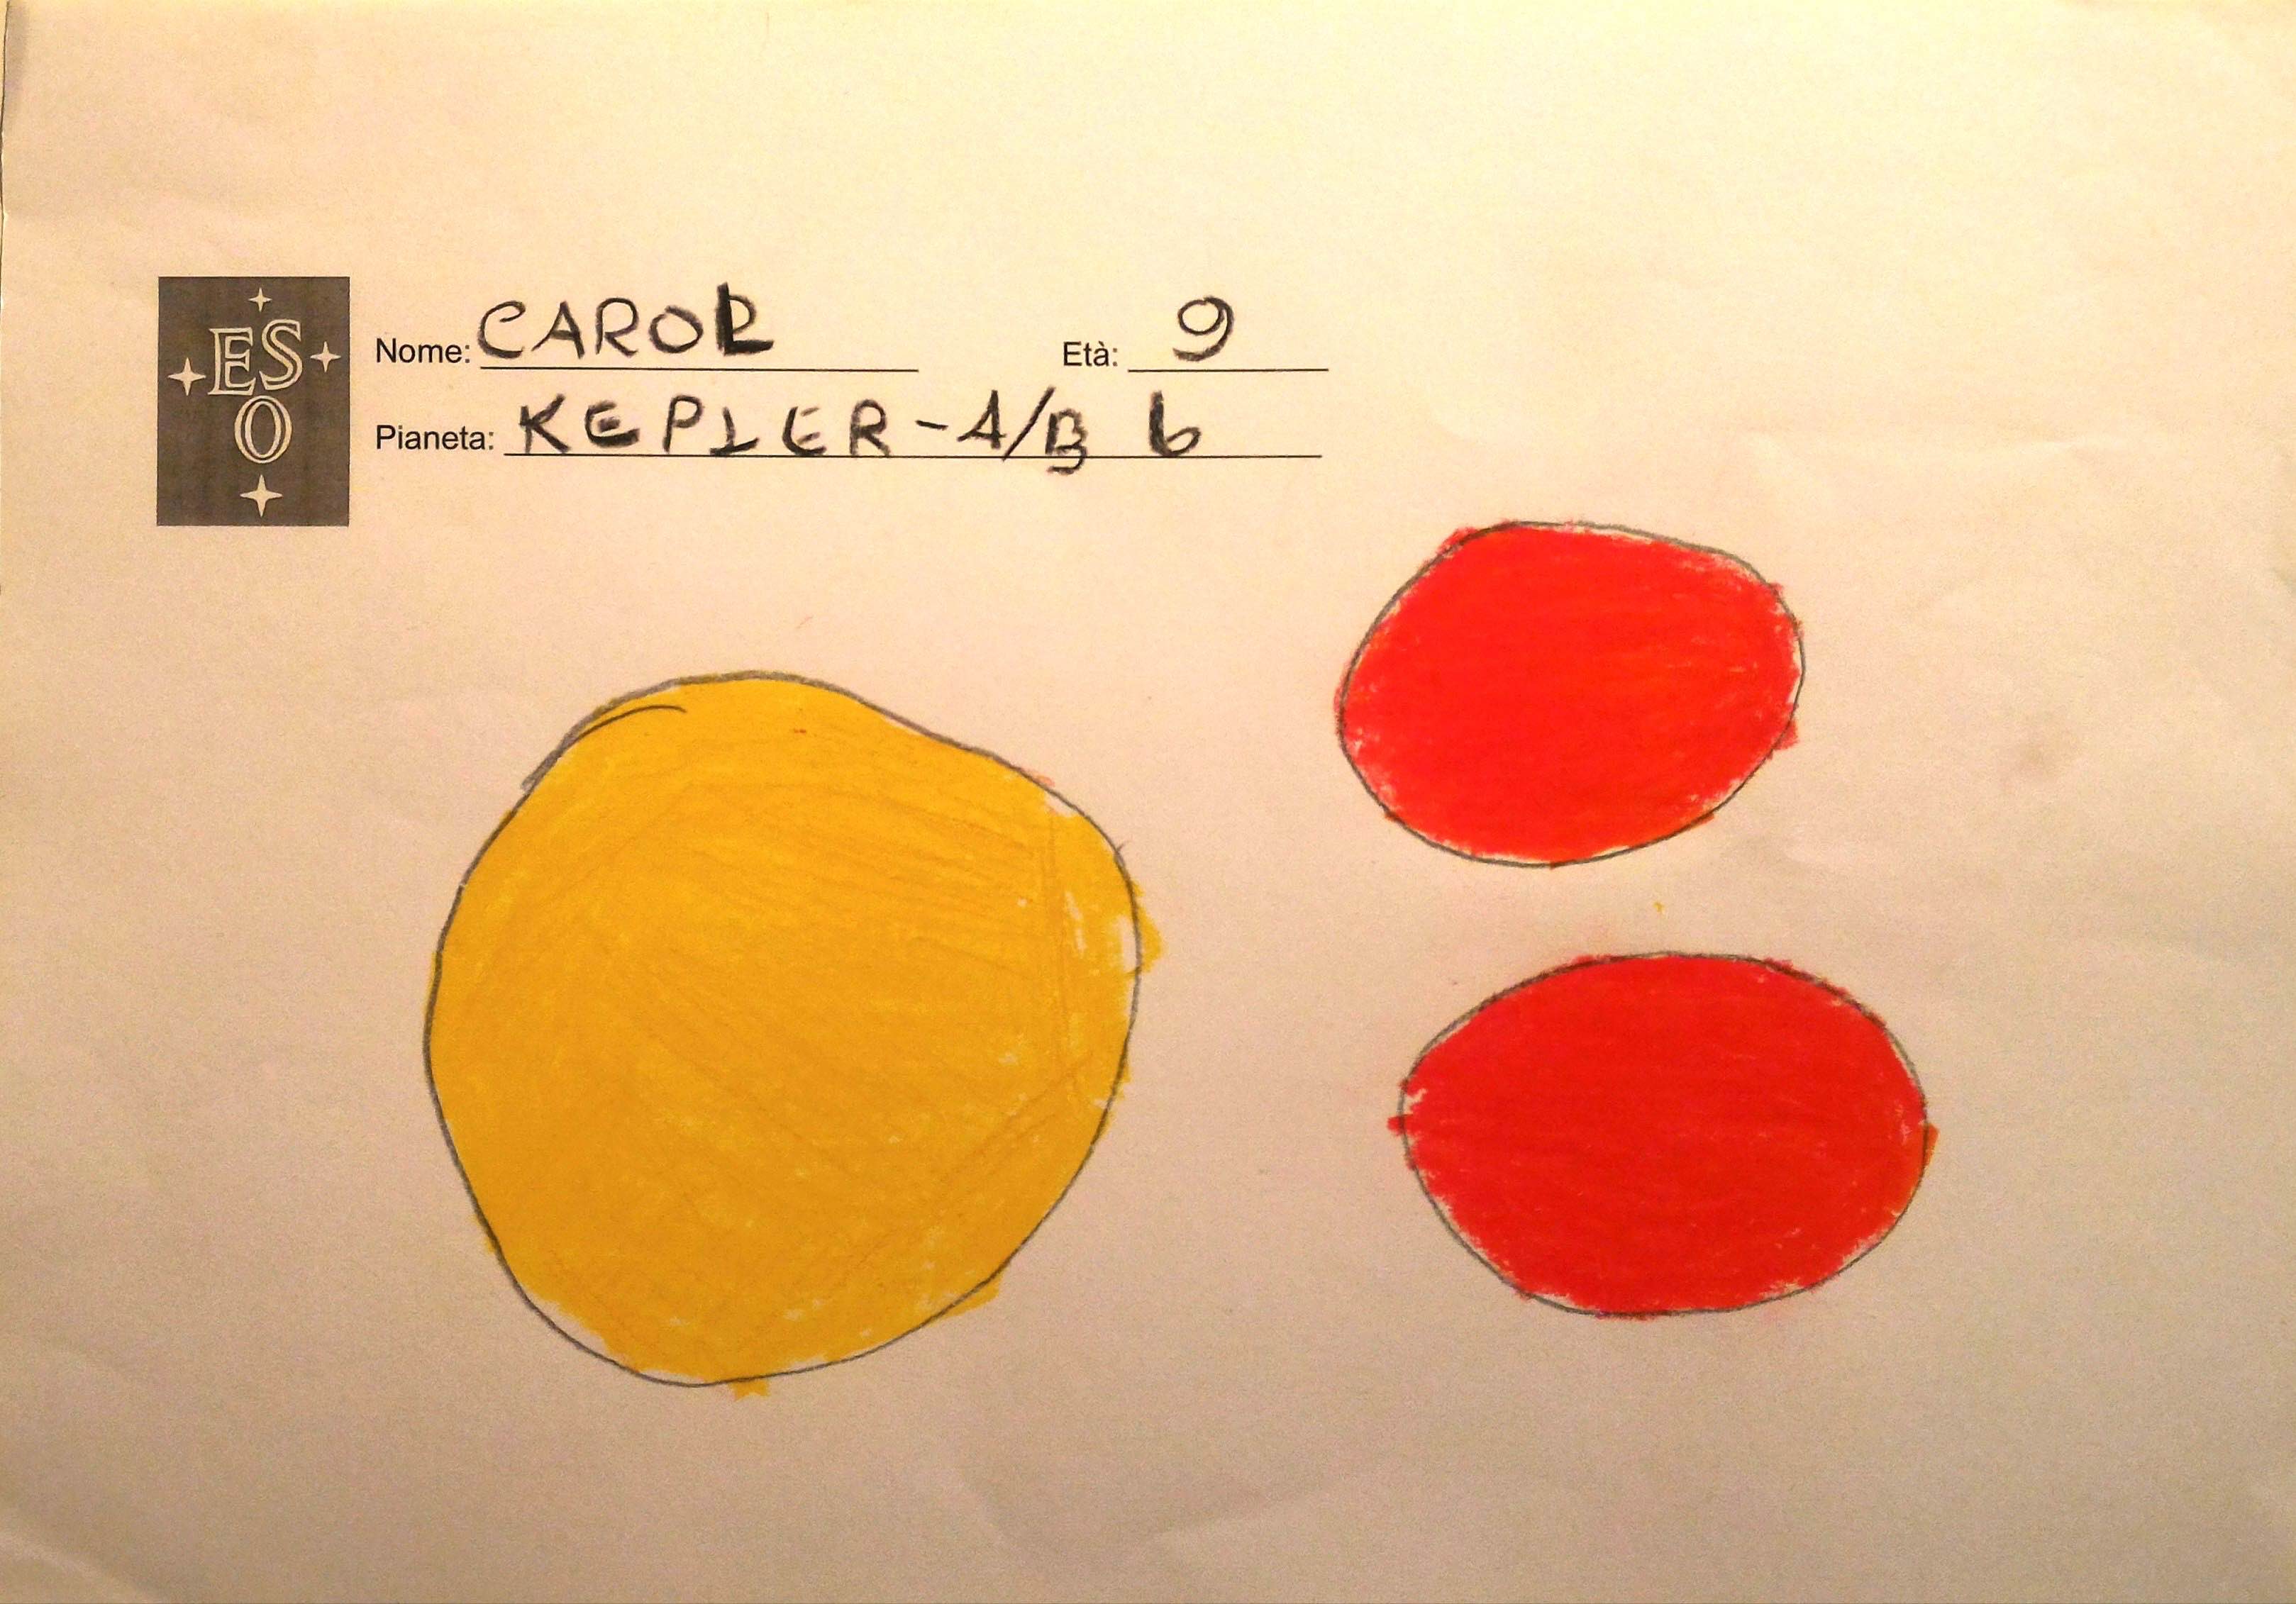 ES
O
Nome: CAROL Età: 9
Pianeta: KEPLER-A/B b